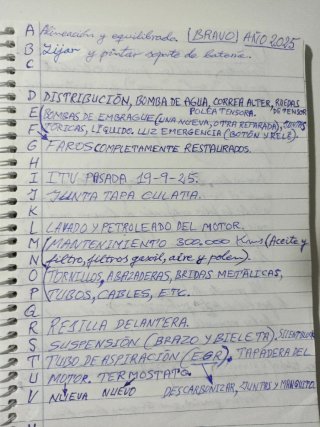 A Alineación y equilibrado. (BRAVO) AÑO 2025
B Lijar y pintar soporte de batería.
C
D DISTRIBUCIÓN, BOMBA DE AGUA, CORREA ALTER, RUEDAS
POLEA TENSORA. DE TENSOR
E (BOMBAS DE EMBRAGUE (UNA NUEVA, OTRA REPARADA), JUNTAS
F TÓRICAS, LÍQUIDO. LUZ EMERGENCIA (BOTÓN Y RELÉ).
G FAROS COMPLETAMENTE RESTAURADOS.
H
I ITV PASADA 19-9-25.
J JUNTA TAPA CULATA.
K
L LAVADO Y PETROLEADO DEL MOTOR.
M (MANTENIMIENTO 300.000 Kms (Aceite y
N filtro, filtros gasoil, aire y polen).
O (TORNILLOS, ABAZADERAS, BRIDAS METÁLICAS,
P TUBOS, CABLES, ETC.
Q
R REJILLA DELANTERA.
S SUSPENSIÓN (BRAZO Y BIELETA). SILENTBLOCK
T TUBO DE ASPIRACIÓN (EGR). TAPADERA DEL
U MOTOR. TERMOSTATO.
V NUEVA NUEVO DESCARBONIZAR, JUNTAS Y MANGUITO.